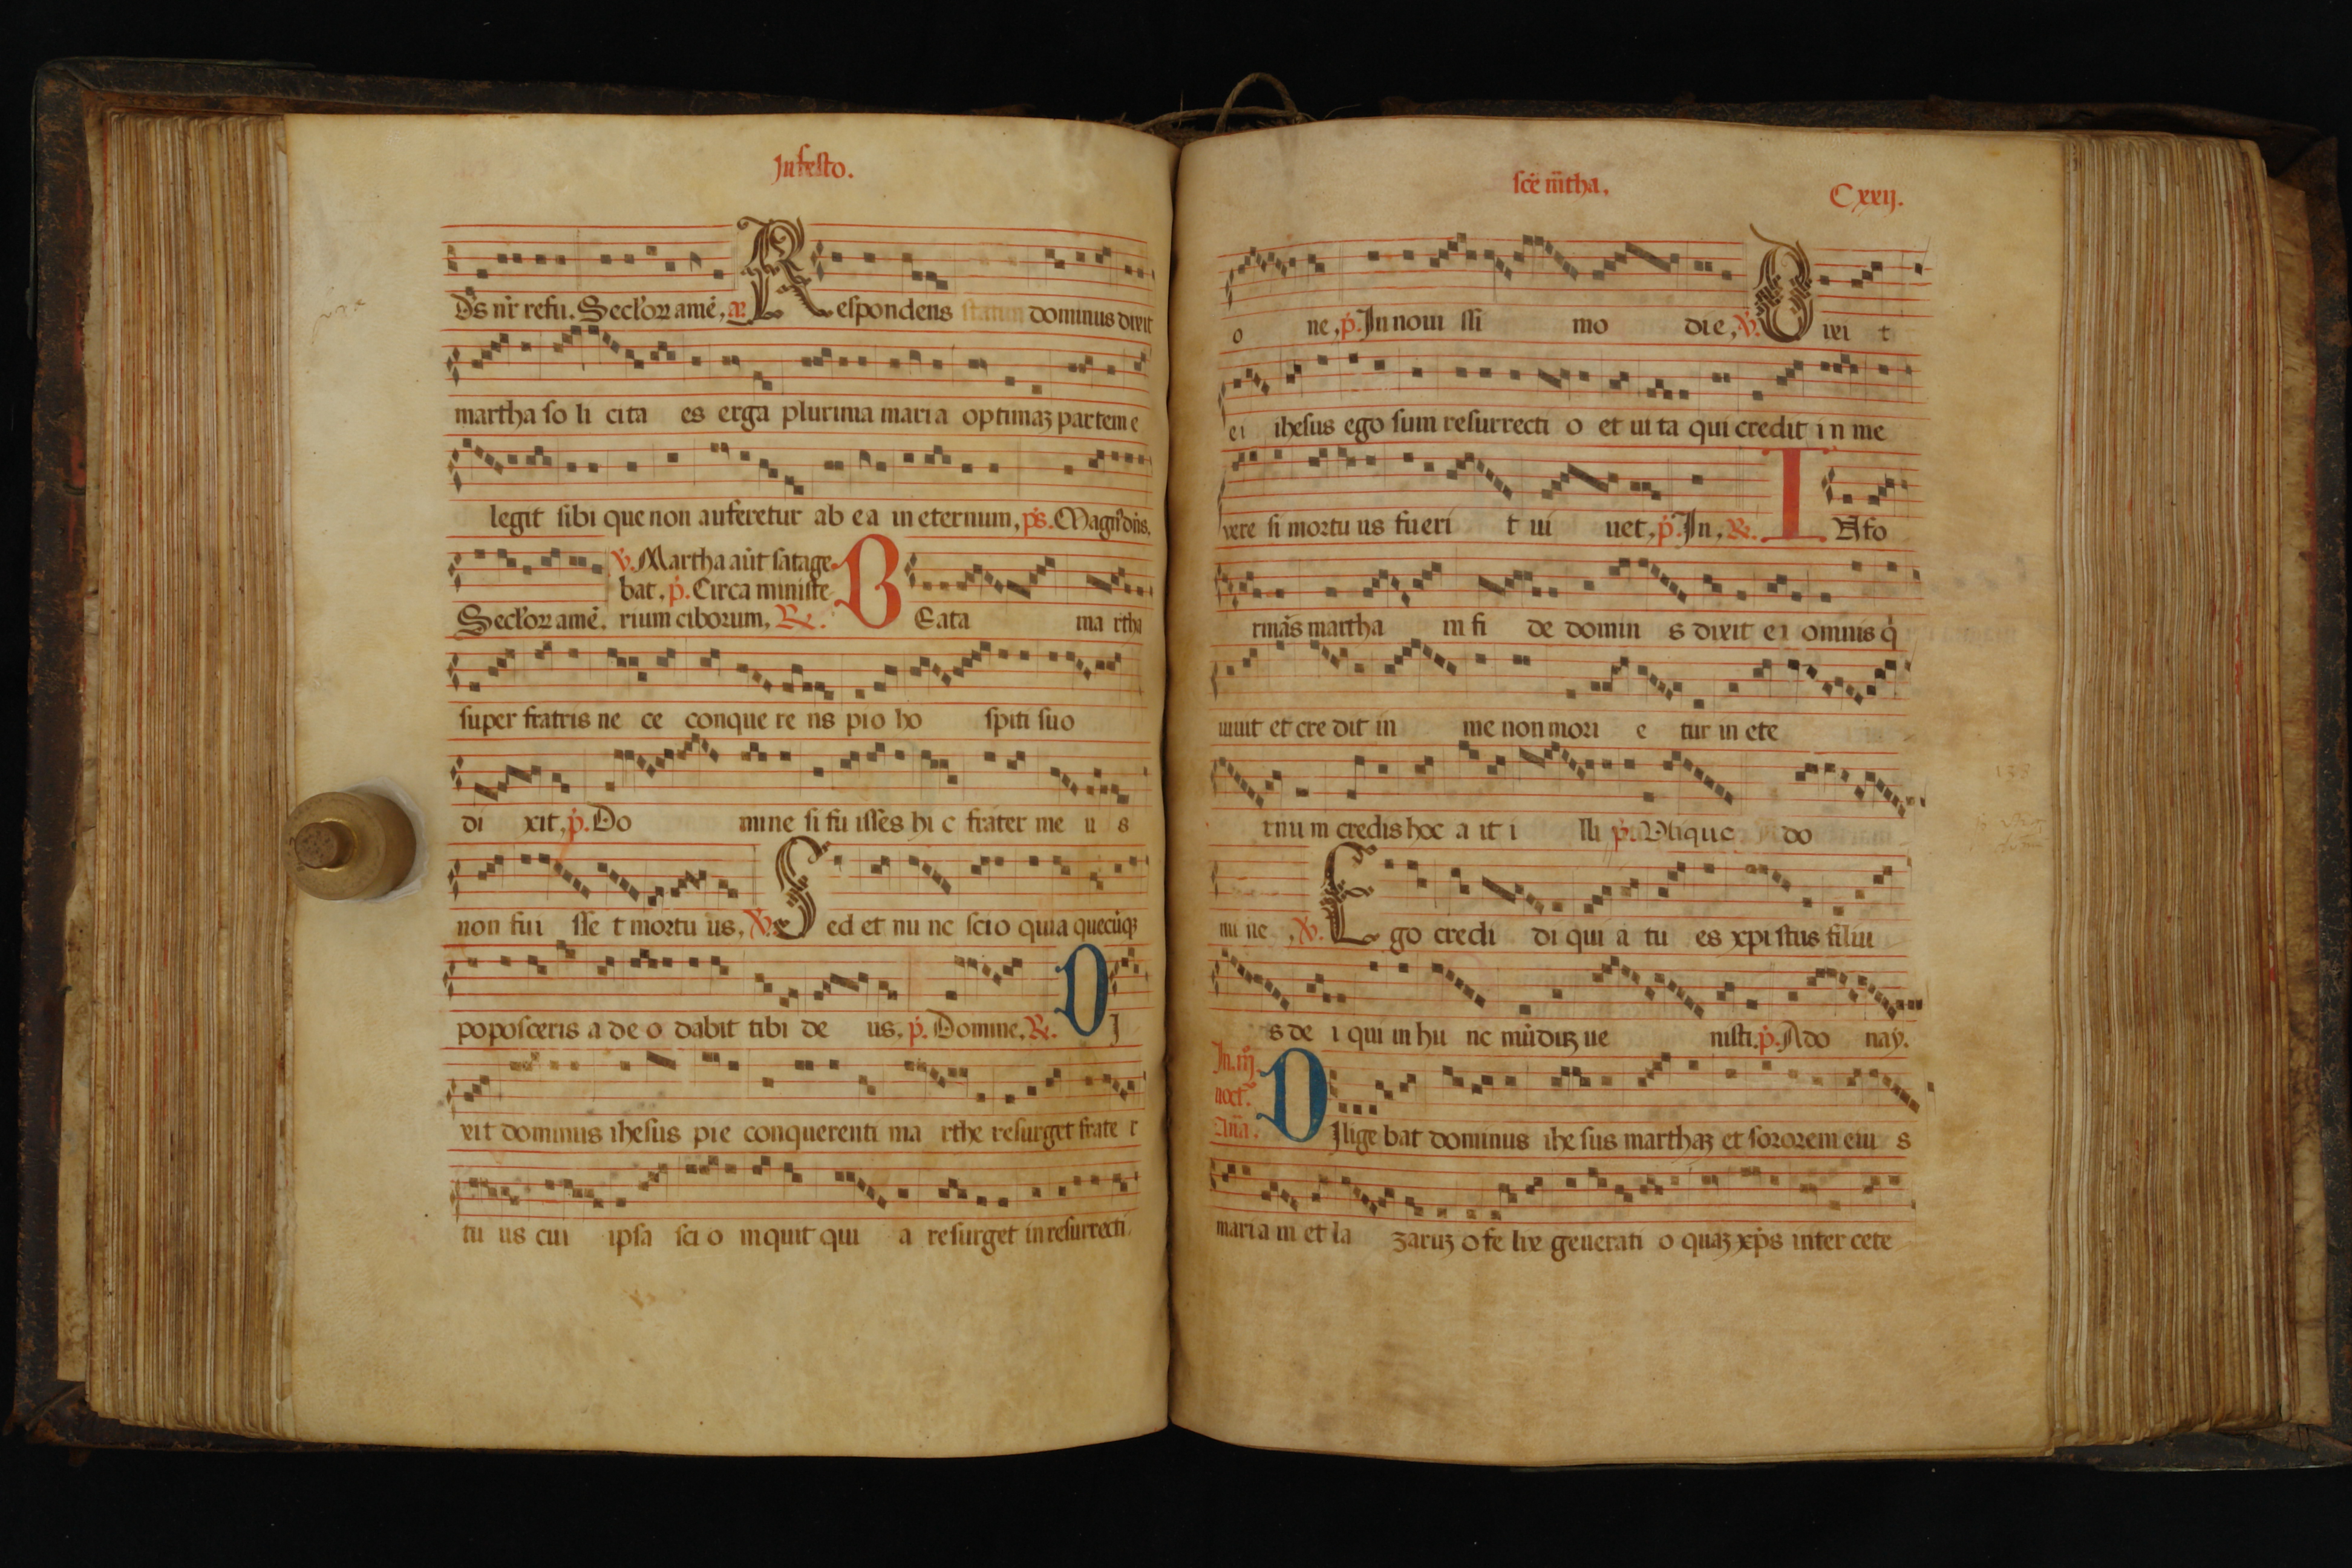 In festo.
Ds nr refu. Seclor amē, a Respondens dominus dixit
martha so li cita es erga plurima maria optimaʒ partem e
legit sibi que non auferetur ab ea in eternum, ps. Magn' dn̄s.
v. Martha aūt satage
bat, p. Circa ministe
Seclor amē. rium ciborum, R. BEata ma rtha
super fratris ne ce conque re ns pio ho spiti suo
di xit, p. Do mine si fu isses hi c frater me u s
non fui sse t mortu us, v. Sed et nu nc scio quia quecūqʒ
poposceris a de o dabit tibi de us, p. Domine, R. DI
xit dominus ihesus pie conquerenti ma rthe resurget frate r
tu us cui ipsa sci o inquit qui a resurget in resurrecti
scē m̄tha, Cxxij.
o ne, p. In noui ssi mo die, v. Dixi t
ei ihesus ego sum resurrecti o et ui ta qui credit i n me
vere si mortu us fueri t ui uet, p. In, R. IAfo
rmās martha in fi de domin s dixit e i omnis q
uiuit et cre dit in me non mori e tur in ete
rnu m credis hoc a it i lli p. Vtique do
mi ne, v. Ego credi di qui a tu es xpi stus filiu
s de i qui in hu nc mūdūʒ ue nisti. p. Ado nay.
In. iij
noct.
Anā. DIlige bat dominus ihe sus marthaʒ et sororem eiu s
maria m et la zaruʒ o fe lix generati o quaʒ xp̄s inter cete